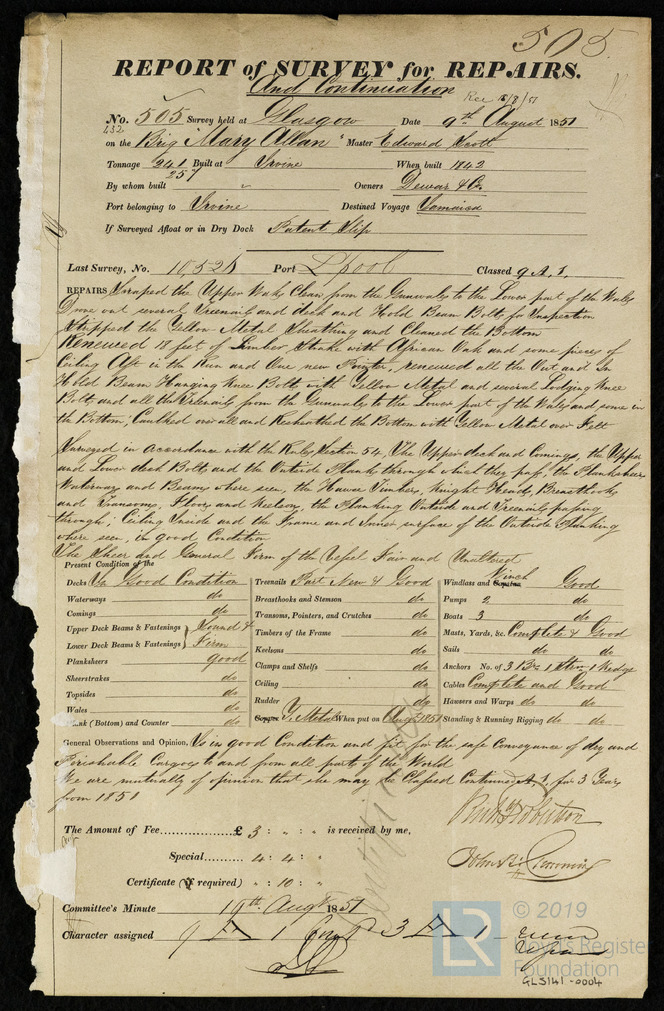 505.
REPORT of SURVEY for REPAIRS.
And Continuation
Rec 15/8/51
No. 505 Survey held at Glasgow Date 9th August 1851
232
on the Brig "Mary Allan" Master Edward Scott
Tonnage 241 Built at Irvine When built 1842
257
By whom built " Owners Dewar & Co.
Port belonging to Irvine Destined Voyage Jamaica
If Surveyed Afloat or in Dry Dock Patent Slip
Last Survey, No. Port L'pool Classed 9 A. 1.
REPAIRS Scraped the Upper Works Clean from the Gunwales to the Lower part of the Wales
Drove out several Treenails and deck and Hold Beam Bolts for Inspection
Stripped the Yellow Metal Sheathing and Cleaned the Bottom
Renewed 18 feet of Limber Strake with African Oak and some pieces of
Ceiling Aft in the Run and One new Pointer, renewed all the Out and In
Hold Beam Hanging Knee Bolts with Yellow Metal and several Lodging Knee
Bolts and all the Treenails from the Gunwales to the Lower part of the Wales and some in
the Bottom, Caulked over all and Resheathed the Bottom with Yellow Metal over Felt
Surveyed in accordance with the Rules, Section 54, The Upper deck and Comings, the Upper
and Lower deck Bolts and the Outside Plank through which they pass, the Plankshears
Waterways and Beams where seen, the Hawse Timbers, Knight Heads, Breasthooks
and Transoms, Floors and Keelson, the Planking Outside and Treenails passing
through, Ceiling Inside and the Frame and Inner surface of the Outside Planking
where seen, in good Condition
The Sheer and General Form of the Vessel Fair and Unaltered
Present Condition of the
Decks In Good Condition
Waterways do
Comings do
Upper Deck Beams & Fastenings } Sound &
Lower Deck Beams & Fastenings } Firm
Planksheers good
Sheerstrakes do
Topsides do
Wales do
Plank (Bottom) and Counter do
Treenails Part New & Good
Breasthooks and Stemson do
Transoms, Pointers, and Crutches do
Timbers of the Frame do
Keelsons do
Clamps and Shelfs do
Ceiling do
Rudder do
Copper Y. Metal When put on Augt 1851
Winch
Windlass and Capstan Good
Pumps 2 do
Boats 3 do
Masts, Yards, &c. Complete & Good
Sails do do
Anchors No. of 3 Brs 1 Strm 1 Kedge
Cables Complete and Good
Hawsers and Warps do do
Standing & Running Rigging do do
General Observations and Opinion. Is in good Condition and fit for the safe Conveyance of dry and
Perishable Cargoes to and from all parts of the World
We are mutually of opinion that she may be Classed Continued A 1. for 3 Years
from 1851
The Amount of Fee £ 3 : " : " is received by me,
Special 4 : 4 : "
Certificate (if required) " : 10 : "
Committee's Minute 19th Augt 1851
Character assigned 9 A 1 Cont 3 A 1
© 2019
LR
Lloyd's Register
Foundation
GLS141-0004